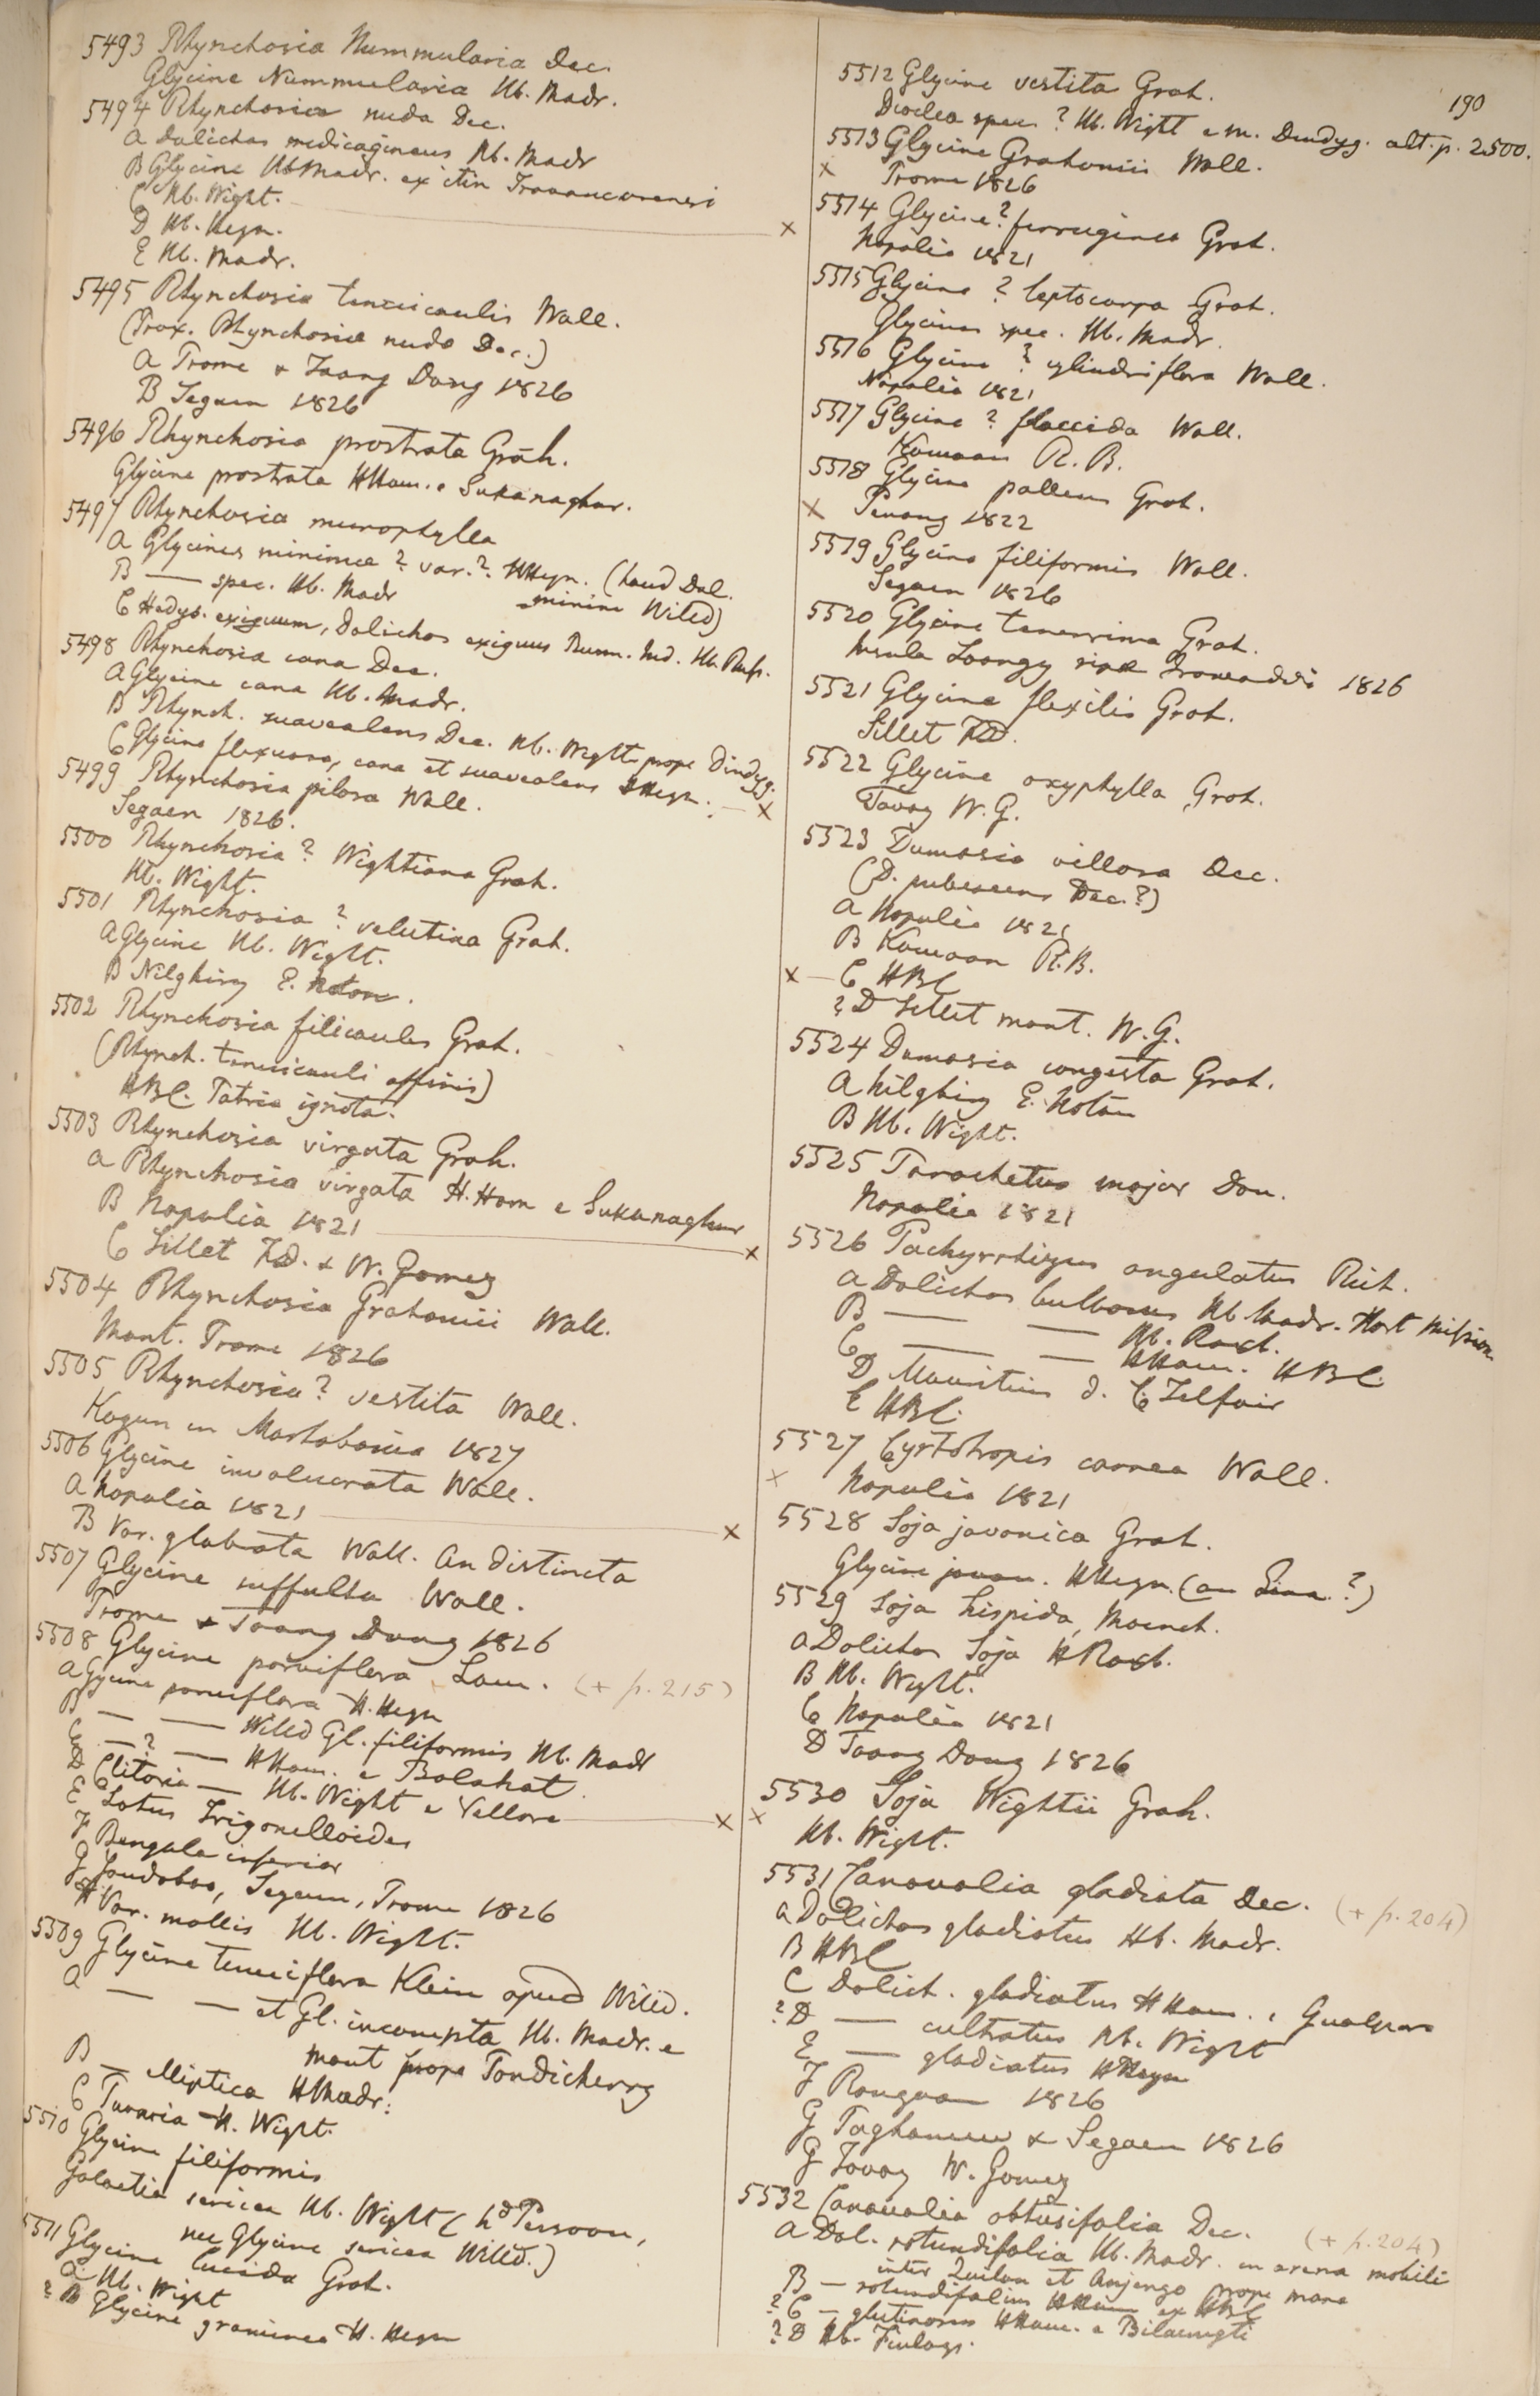 5493 Rhynchosia Nummularia Dec.
Glycine Nummularia Hb. Madr.
5494 Rhynchosia nuda Dec.
a Dolichos medicagineus Hb. Madr
B Glycine Hb Madr. ex itin Travancorensi
C Hb. Wight.
D Hb. Heyn.
E Hb. Madr.
5495 Rhynchosia tenuicaulis Wall.
(Prox. Rhynchosiae nuda Dec.)
a Prome & Taong Dong 1826
B Segaen 1826
5496 Rhynchosia prostrata Grah.
Glycine prostrata HHam. e Sukanaghur.
5497 Rhynchosia microphylla
a Glycines minimae? var.? HHeyn. (haud Dol.
minimi Willd)
B — spec. Hb. Madr
C Hedys. exiguum, Dolichos exiguus Rumn. Ind. Hb.
5498 Rhynchosia cana Dec.
a Glycine cana Hb. Madr.
B Rhynch. suaveolens Dec. Hb. Wight prope Dindyg.
C Glycine flexuosa, cana et suaveolens HHeyn. — x
5499 Rhynchosia pilosa Wall.
Segaen 1826.
5500 Rhynchosia? Wightiana Grah.
Hb. Wight.
5501 Rhynchosia? velutina Grah.
a Glycine Hb. Wight.
B Nilghiry E. Noton.
5502 Rhynchosia filicaulis Grah.
(Rhynch. tenuicauli affinis)
HBC. Patria ignota.
5503 Rhynchosia virgata Grah.
a Rhynchosia virgata H. Ham e Sukanaghur
B Napalia 1821 x
C Sillet FD. & W. Gomez
5504 Rhynchosia Grahamii Wall.
Mont. Prome 1826
5505 Rhynchosia? vestita Wall.
Kogun in Martabania 1827
5506 Glycine involucrata Wall.
a Napalia 1821 x
B Var. glabrata Wall. an distincta
5507 Glycine suffulta Wall.
Prome & Taong Dong 1826
5508 Glycine parviflora Lam. (+ p. 215)
a Glycine parviflora H. Heyn
B — — Willd Gl. filiformis Hb. Madr
C — ? — HHam. e Balahat
D Clitoria — Hb. Wight e Vellore x
E Lotus Trigonelloides
F Bengala inferior
G Segaen, Prome 1826
H Var. mollis Hb. Wight.
5509 Glycine tenuiflora Klein apud Willd.
a — — et Gl. incompta Hb. Madr. e
mont prope Pondicherry
B — elliptica HMadr.
C H. Wight.
5510 Glycine filiformis
Galactia sericea Hb. Wight (hd Persoon,
nec Glycine sericea Willd.)
5511 Glycine lucida Grah.
a Hb. Wight
? B Glycine graminea H. Heyn
190
5512 Glycine vestita Grah.
Dioclea spec? Hb. Wight e m. Dendyg. alt. p. 2500.
5513 Glycine Grahamii Wall.
x Prome 1826
5514 Glycine? ferruginea Grah.
Napalia 1821
5515 Glycine? leptocarpa Grah.
Glycines spec. Hb. Madr.
5516 Glycine? cylindriflora Wall.
Napalia 1821
5517 Glycine? flaccida Wall.
Kamaon R. B.
5518 Glycine pallens Grah.
x Penang 1822
5519 Glycine filiformis Wall.
Segaen 1826
5520 Glycine tenerrima Grah.
Insula Loongy ripae Irawaddi 1826
5521 Glycine flexilis Grah.
Sillet FD.
5522 Glycine oxyphylla Grah.
Tavoy W. G.
5523 Dumasia villosa Dec.
(D. pubescens Dec.?)
a Napalia 1821
B Kamaon R. B.
x — C HBC
? D Sillet mont. W. G.
5524 Dumasia congesta Grah.
a Nilghiry E. Noton
B Hb. Wight.
5525 Parochetus major Don.
Napalia 1821
5526 Pachyrrhizus angulatus Rich.
a Dolichos bulbosus Hb Madr. Hort Mission
B — — Hb. Roxb.
C — — HHam. HBC.
D Mauritius d. C. Telfair
E HBC.
5527 Cyrtotropis carnea Wall.
x Napalia 1821
5528 Soja javanica Grah.
Glycine javan. HHeyn. (an Linn.?)
5529 Soja hispida, Moench.
a Dolichos Soja HRoxb.
B Hb. Wight.
C Napalia 1821
D Taong Dong 1826
5530 Soja Wightii Grah.
x Hb. Wight.
5531 Canavalia gladiata Dec. (+ p. 204)
a Dolichos gladiatus Hb. Madr.
B HBC
C Dolich. gladiatus HHam. e Gualpara
? D — cultratus Hb. Wight
E — gladiatus HHeyn
F Rangoon 1826
G Paghamew & Segaen 1826
G Tavoy W. Gomez
5532 Canavalia obtusifolia Dec. (+ p. 204)
a Dol. rotundifolia Hb. Madr. in arena mobili
inter Quilon et Anjengo prope mare
B — rotundifolius HHam ex HBC
? C — glutinosus HHam. e
? D Hb. Finlays.